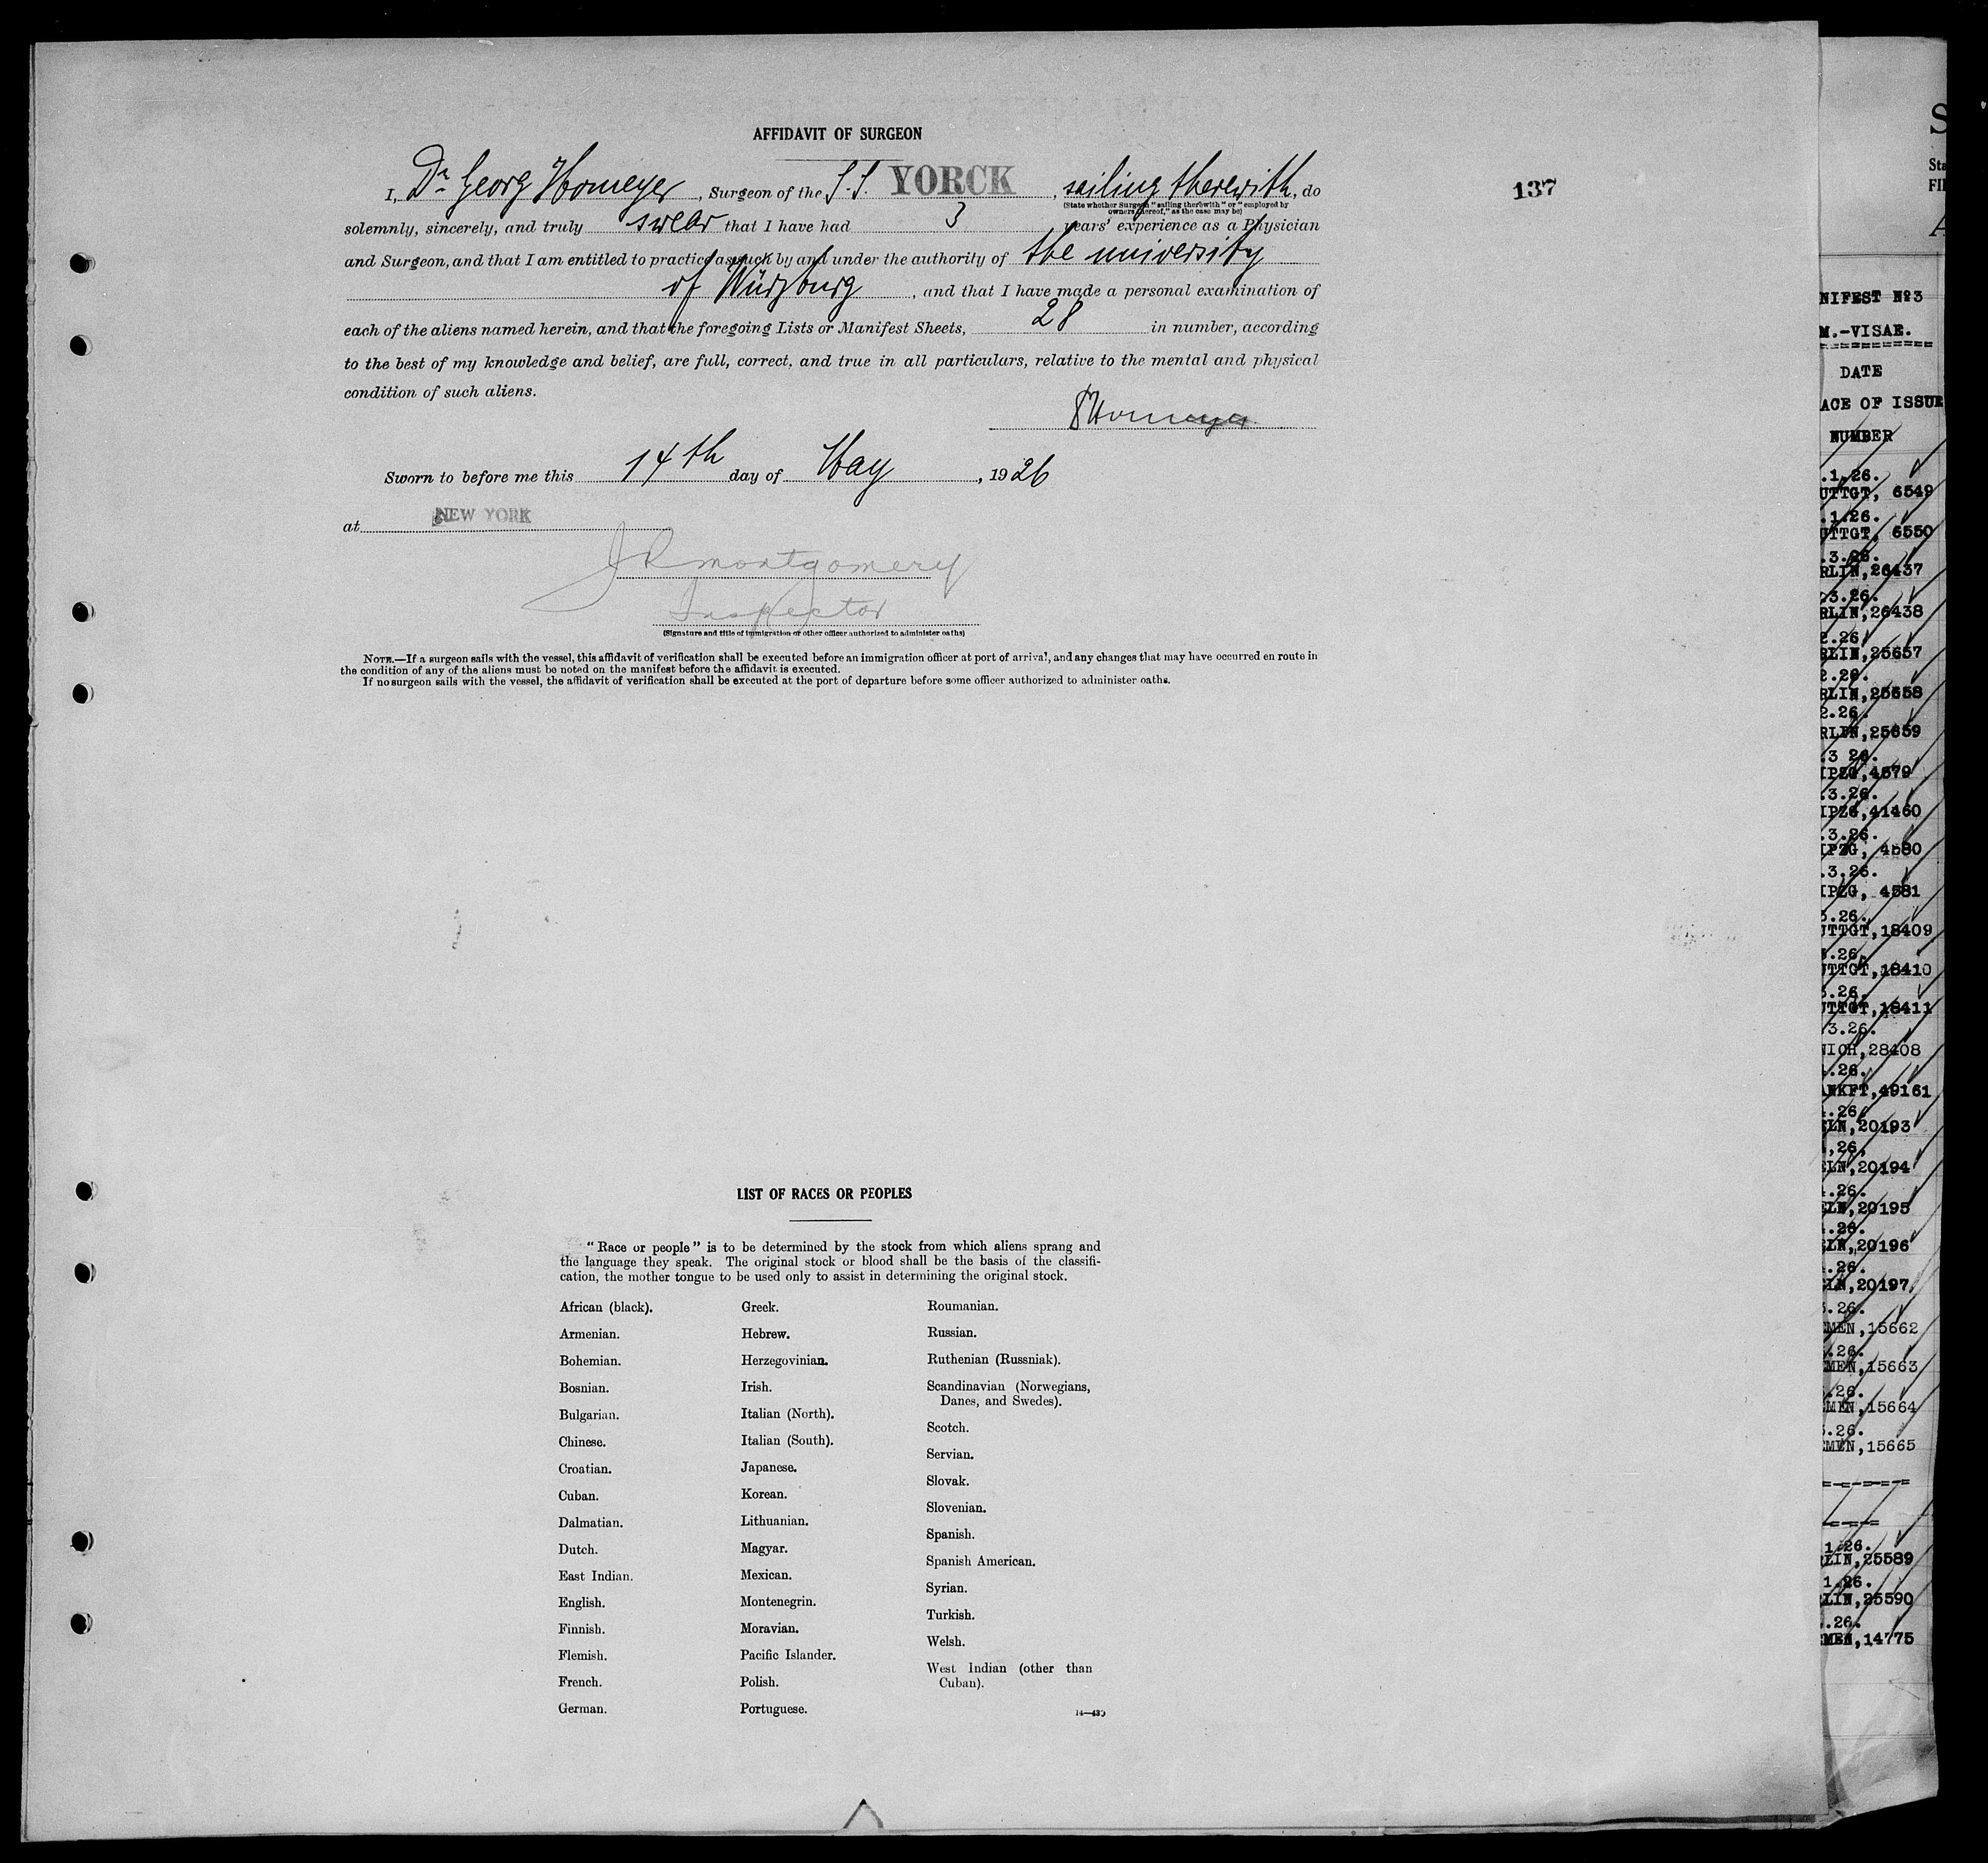 AFFIDAVIT OF SURGEON
I, Dr Georg Homeyer, Surgeon of the S.S. YORCK, sailing therewith, do
(State whether Surgeon "sailing therewith" or "employed by
owners thereof," as the case may be)
137
solemnly, sincerely, and truly swear that I have had 3 years' experience as a Physician
and Surgeon, and that I am entitled to practice as such by and under the authority of the university
of Würzburg, and that I have made a personal examination of
each of the aliens named herein, and that the foregoing Lists or Manifest Sheets, 28 in number, according
to the best of my knowledge and belief, are full, correct, and true in all particulars, relative to the mental and physical
condition of such aliens.
Homeyer
Sworn to before me this 14th day of May, 1926
at NEW YORK
J R Montgomery
Inspector
(Signature and title of immigration or other officer authorized to administer oaths)
NOTE.—If a surgeon sails with the vessel, this affidavit of verification shall be executed before an immigration officer at port of arrival, and any changes that may have occurred en route in
the condition of any of the aliens must be noted on the manifest before the affidavit is executed.
If no surgeon sails with the vessel, the affidavit of verification shall be executed at the port of departure before some officer authorized to administer oaths.
LIST OF RACES OR PEOPLES
"Race or people" is to be determined by the stock from which aliens sprang and
the language they speak. The original stock or blood shall be the basis of the classifi-
cation, the mother tongue to be used only to assist in determining the original stock.
African (black).
Armenian.
Bohemian.
Bosnian.
Bulgarian.
Chinese.
Croatian.
Cuban.
Dalmatian.
Dutch.
East Indian.
English.
Finnish.
Flemish.
French.
German.
Greek.
Hebrew.
Herzegovinian.
Irish.
Italian (North).
Italian (South).
Japanese.
Korean.
Lithuanian.
Magyar.
Mexican.
Montenegrin.
Moravian.
Pacific Islander.
Polish.
Portuguese.
Roumanian.
Russian.
Ruthenian (Russniak).
Scandinavian (Norwegians,
Danes, and Swedes).
Scotch.
Servian.
Slovak.
Slovenian.
Spanish.
Spanish American.
Syrian.
Turkish.
Welsh.
West Indian (other than
Cuban).
14—430
S
Sta
FI
A
NIFEST Nº3
M.-VISAE.
============
DATE
ACE OF ISSUE
NUMBER
.1.26.
UTTGT, 6549
.1.26.
UTTGT, 6550
.3.26.
RLIN,26437
.3.26.
RLIN,26438
2.26.
RLIN,25657
2.26.
RLIN,25658
2.26.
RLIN,25659
.3 26.
IPZG,4579
.3.26.
IPZG,41460
.3.26.
IPZG, 4580
.3.26.
IPZG, 4581
3.26.
UTTGT,18409
3.26.
UTTGT,18410
3.26.
UTTGT,18411
3.26.
NICH,28408
.26.
ANKFT,49161
.26.
ELN,20193
.26,
ELN,20194
.26.
ELN,20195
.26.
ELN,20196
.26.
ELN,20197
.26.
EMEN,15662
.26.
EMEN,15663
.26.
EMEN,15664
.26.
EMEN,15665
1.26.
RLIN,25589
1.26.
RLIN,25590
.26.
EMEN,14775